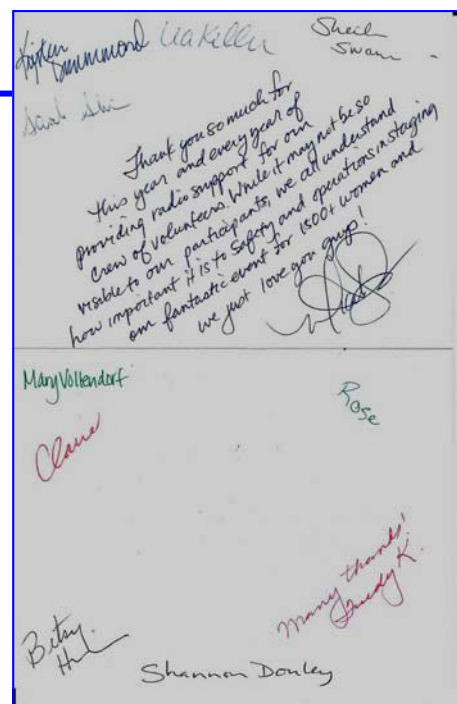 Kirsten Drummond Lia Keller
Sheila
Swann
Sarah
Thank you so much for
this year and every year of
providing radio support for our
crew of volunteers. While it may not be so
visible to our participants, we all understand
how important it is to Safety and operations in staging
our fantastic event for 1500+ women and
we just love you guys!
Mary Voltendorf
Rose
Claire
Many thanks!
Trudy K.
Betsy
Shannon Donley